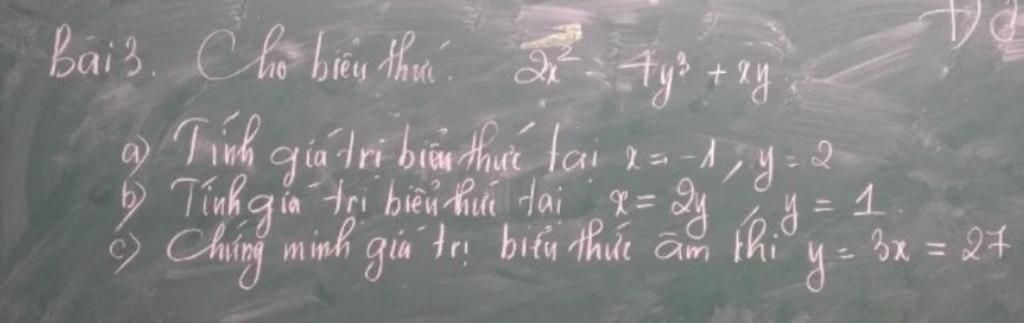 Bài 3. Cho biểu thức. 2x² - 4y³ + xy
a) Tính giá trị biểu thức tại x = -1, y = 2
b) Tính giá trị biểu thức tại x = 2y y = 1.
c) Chứng minh giá trị biểu thức âm khi y = 3x = 27